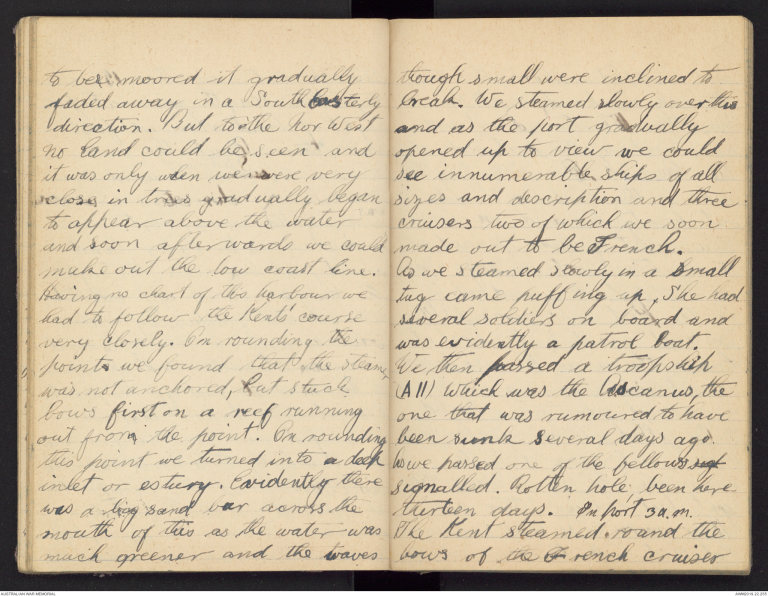 to bee moored it gradually
faded away in a South Easterly
direction. But to the Nor West
no land could be seen and
it was only when we were very
close in trees gradually began
to appear above the water
and soon afterwards we could
make out the low coast line.
Having no chart of this harbour we
had to follow the Kents' course
very closely. On rounding the
point we found that the steamer
was not anchored, but stuck
bows first on a reef running
out from the point. On rounding
this point we turned into a deep
inlet or estury. Evidently there
was a big sand bar across the
mouth of this as the water was
much greener and the waves
though small were inclined to
break. We steamed slowly over this
and as the port gradually
opened up to view we could
see innumerable ships of all
sizes and description and three
cruisers two of which we soon
made out to be French.
As we steamed slowly in a small
tug came puffing up, She had
several soldiers on board and
was evidently a patrol boat.
We then passed a troopship
(A 11) which was the Ascanius, the
one that was rumoured to have
been sunk several days ago.
As we passed one of the fellows
signalled. Rotten hole been here
thirteen days. In Port 3 a.m.
The Kent steamed round the
bows of the French cruiser
AUSTRALIAN WAR MEMORIAL